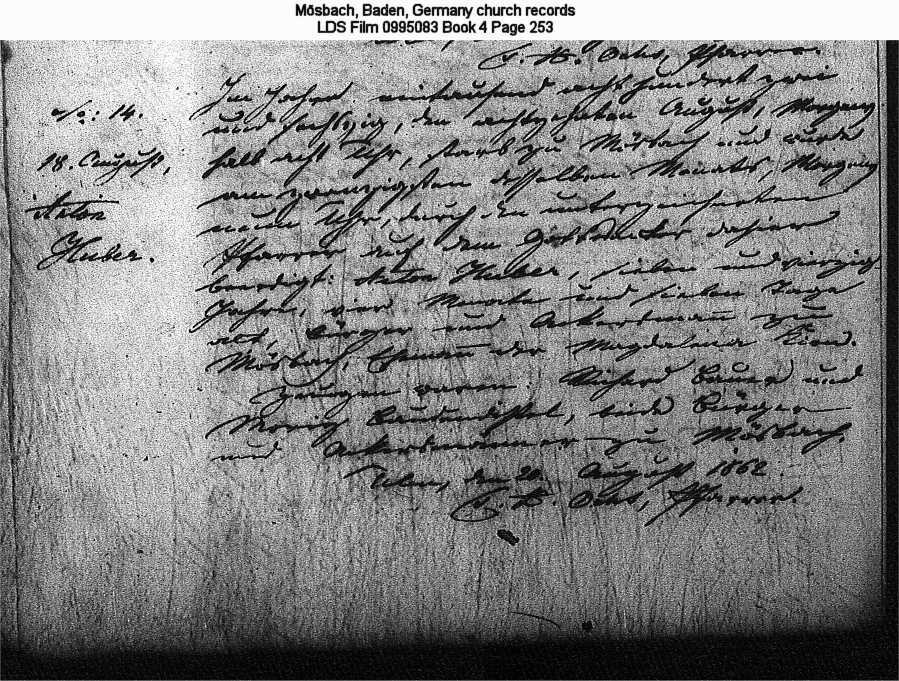 Mösbach, Baden, Germany church records
LDS Film 0995083 Book 4 Page 253
Pfarrer.
No: 14.
18. August,
Anton
Huber.
Im Jahre eintausend acht hundert zwei
und sechszig, den achtzehnten August, Morgens
halb acht Uhr, starb zu Mösbach und wurde
am zwanzigsten desselben Monats, Morgens
neun Uhr, durch den unterzeichneten
Pfarrer auf dem Gottesacker dahier
beerdigt: Anton Huber, sieben und vierzig
Jahre, vier Monate und sieben Tage
alt, Bürger und Ackersmann zu
Mösbach, Ehemann der Magdalena
Zeugen waren: Richard und
Moriz Baudendistel, beide Bürger
und Ackersmänner zu Mösbach.
Ulm, den 20. August 1862.
Pfarrer.